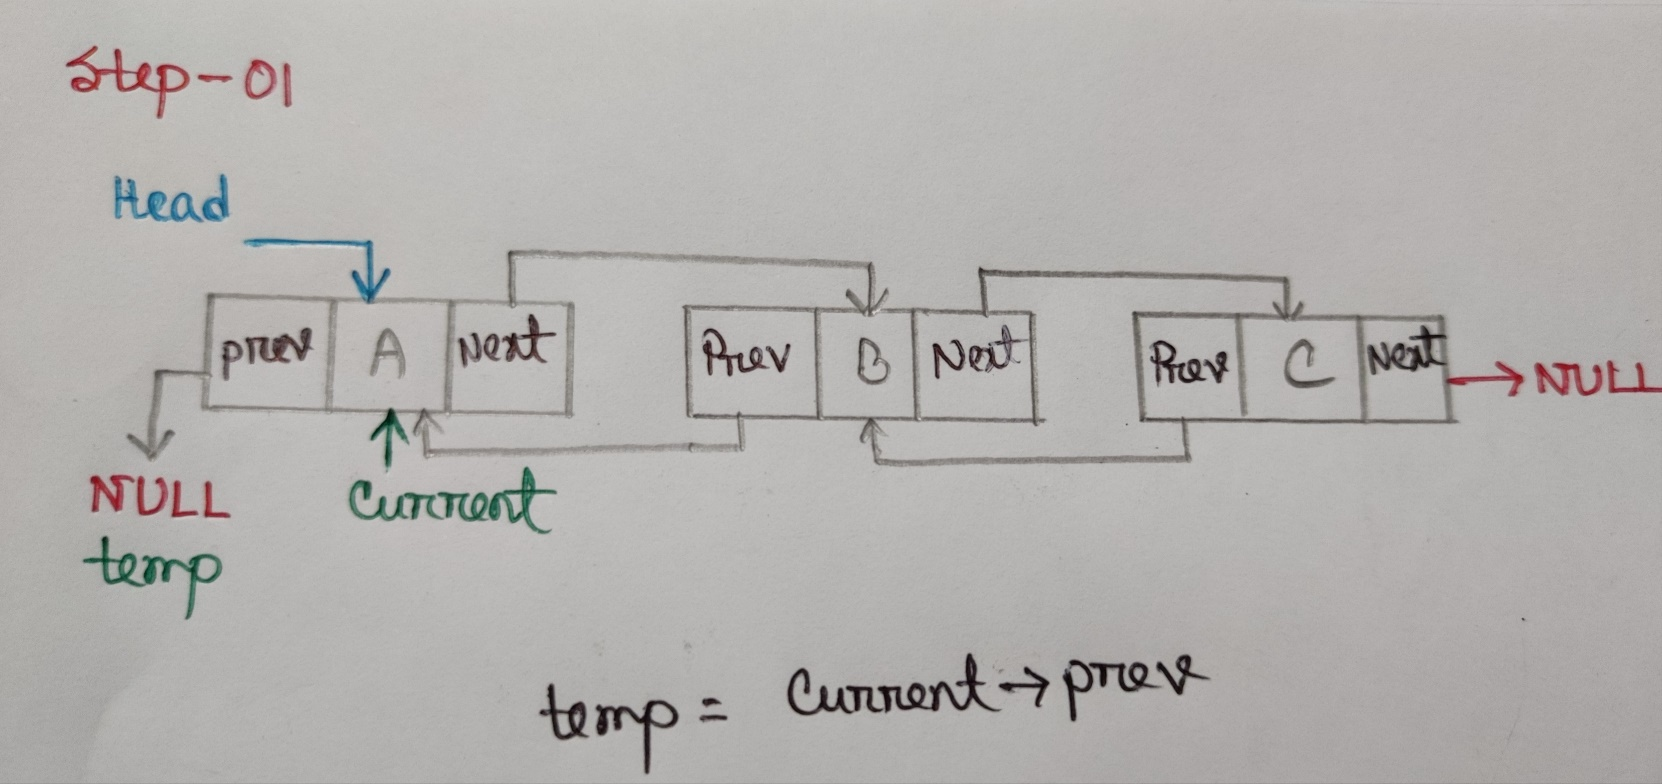 Step-01
Head
prev A Next Prev B Next Prev C Next → NULL
NULL Current
temp
temp = Current → prev